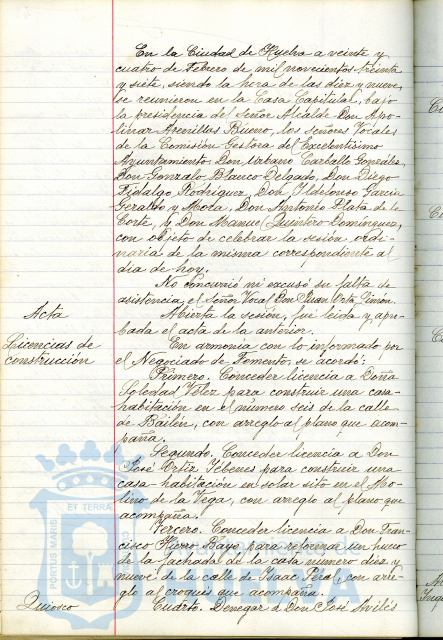 En la Ciudad de Huelva a veinte y
cuatro de Febrero de mil novecientos treinta
y siete, siendo la hora de las diez y nueve,
se reunieron en la Casa Capitular, bajo
la presidencia del Señor Alcalde Don Apo-
linar Arenillas Bueno, los señores Vocales
de la Comisión Gestora del Excelentísimo
Ayuntamiento Don Urbano Carballo González,
Don Gonzalo Blanco Delgado, Don Diego
Fidalgo Rodríguez, Don Ildefonso García
Geraldo y Mota, Don Antonio Plata de la
Corte, y Don Manuel Quintero Domínguez,
con objeto de celebrar la sesión ordi-
naria de la misma correspondiente al
día de hoy.
No concurrió ni excusó su falta de
asistencia, el Señor Vocal Don Juan Ortiz Limón.
Acta
Abierta la sesión, fué leida y apro-
bada el acta de la anterior.
Licencias de
construcción
En armonía con lo informado por
el Negociado de Fomento, se acordó:
Primero. Conceder licencia a Doña
Soledad Vélez para construir una casa
habitación en el número seis de la calle
de Bailén, con arreglo al plano que acom-
paña.
Segundo. Conceder licencia a Don
José Ortiz Yébenes para construir una
casa habitación en solar sito en el Mo-
lino de la Vega, con arreglo al plano que
acompaña.
Tercero. Conceder licencia a Don Fran-
cisco Hierro Bayo para reformar un hueco
de la fachada de la casa número diez y
nueve de la calle de Isaac Peral, con arre-
glo al croquis que acompaña.
Quiosco
Cuarto. Denegar a Don José Avilés
PORTUS MARIS
ET TERRÆ